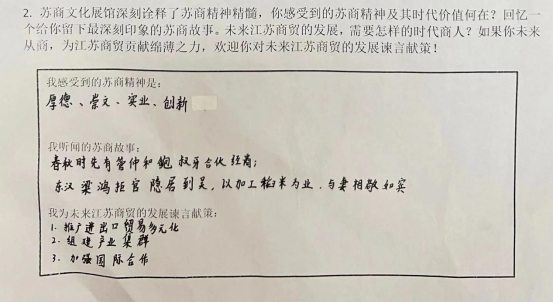 2. 苏商文化展馆深刻诠释了苏商精神精髓，你感受到的苏商精神及其时代价值何在？回忆一
个给你留下最深刻印象的苏商故事。未来江苏商贸的发展，需要怎样的时代商人？如果你未来
从商，为江苏商贸贡献绵薄之力，欢迎你对未来江苏商贸的发展谏言献策！
我感受到的苏商精神是：
厚德、崇文、实业、创新
我听闻的苏商故事：
春秋时先有管仲和鲍叔牙合伙经商；
东汉梁鸿拒官隐居到吴，以加工稻米为业，与妻相敬如宾
我为未来江苏商贸的发展谏言献策：
1. 推广进出口贸易多元化
2. 组建产业集群
3. 加强国际合作